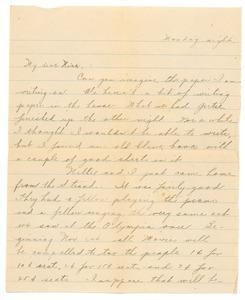 Monday night
My dear Miss,
Can you imagine the paper I am
writing on. We haven't a bit of writing
paper in the house. What we had got
finished up the other night. For a while
I thought I wouldn't be able to write,
but I found an old blank book with
a couple of good sheets in it.
Nellie and I just came home
from the Strand. It was fairly good.
They had a fellow playing the piano
and a fellow singing the very same act
we saw at the Olympia once. Be-
ginning Nov 1st all Movies will
be compelled to tax the people 1¢ for
10¢ seat, 1¢ for 15¢ seat and 2¢ for
25¢ seats. I suppose that will be